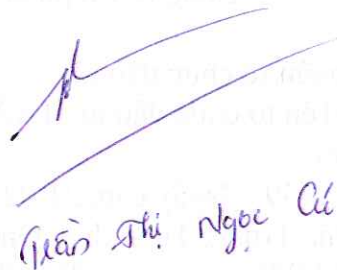 Trần Thị Ngọc Cú